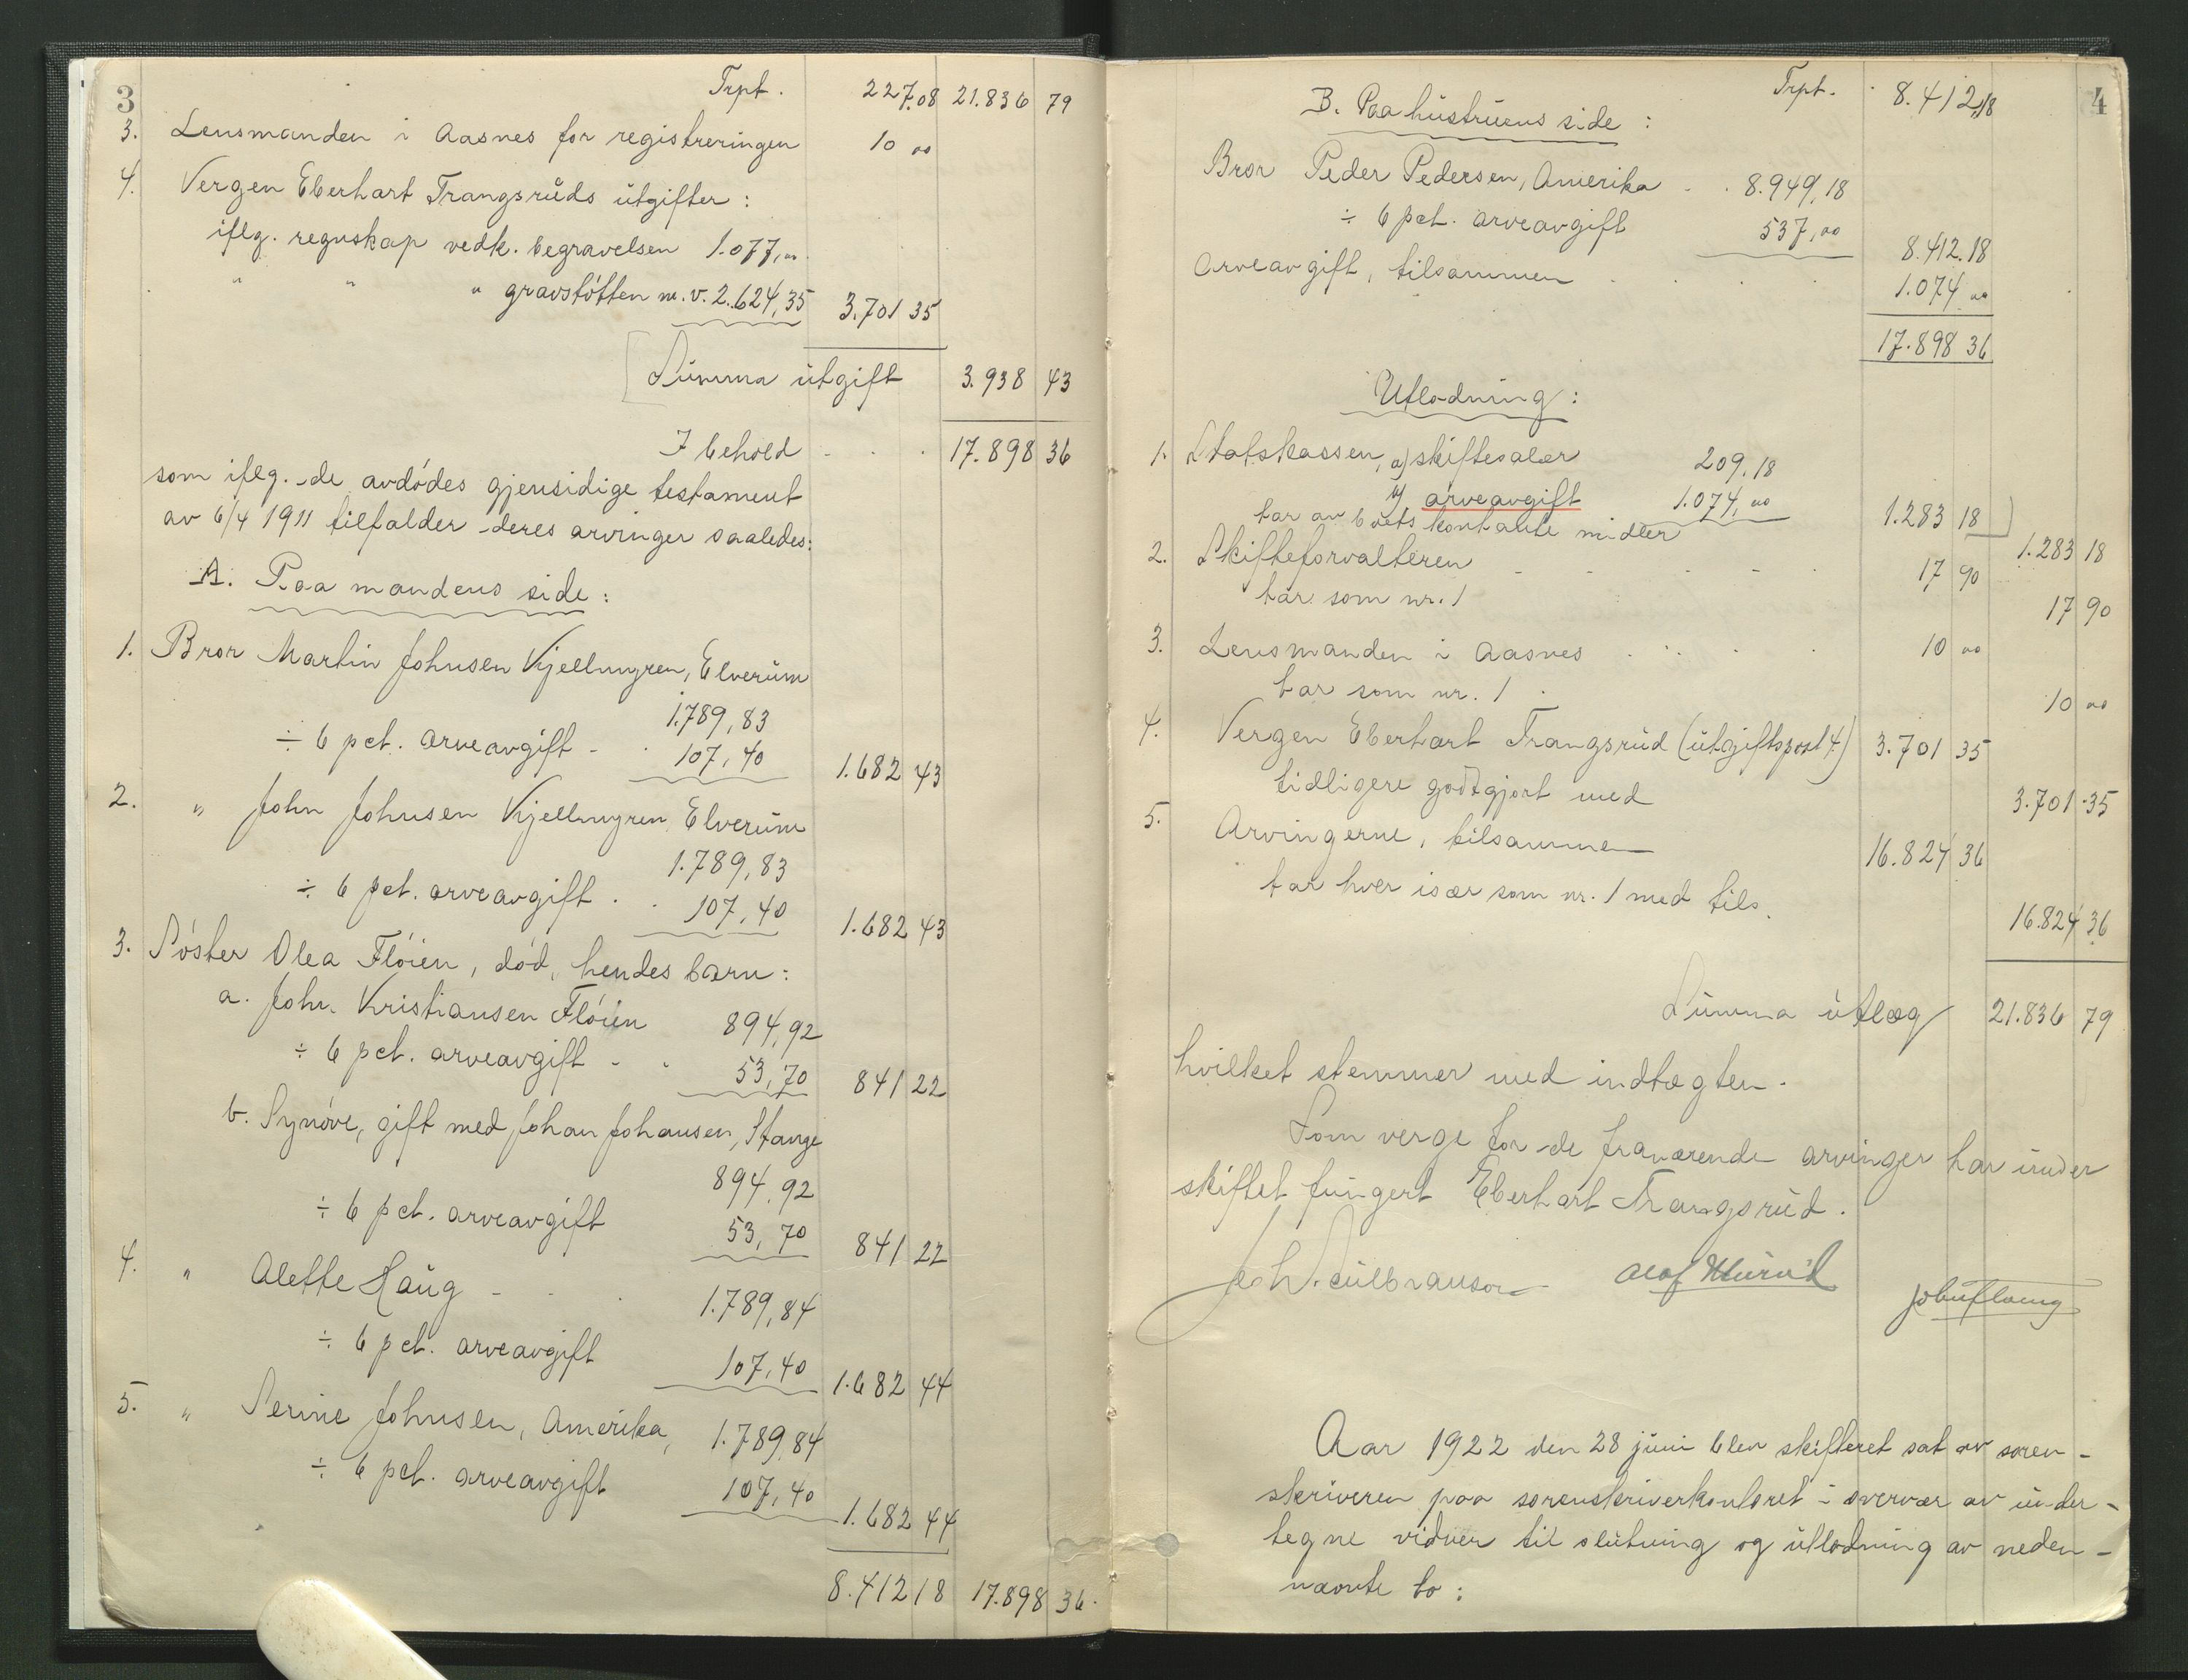 3
Trpt. 227.08 21.836 79
3. Lensmanden i Aasnes for registreringen 10 00
4. Vergen Eberhart Trangsruds utgifter :
iflg. regnskap vedk. begravelsen 1.077,00
" " " gravstøtten m.v. 2.624,35 3.701 35
Summa utgift 3.938 43
I behold . . . 17.898 36
som iflg. de avdødes gjensidige testament
av 6/4 1911 tilfalder deres arvinger saaledes:
A. Paa mandens side :
1. Bror Martin Johnsen Kjellmyren, Elverum
1.789,83
÷ 6 pct. arveavgift - . 107,40 1.682 43
2. " John Johnsen Kjellmyren, Elverum
1.789,83
÷ 6 pct. arveavgift . . 107,40 1.682 43
3. Søster Olea Fløien, død, hendes barn :
a. John Kristiansen Fløien 894,92
÷ 6 pct. arveavgift - . 53,70 841 22
b. Synøve, gift med Johan Johansen, Stange
894,92
÷ 6 pct. arveavgift 53,70 841 22
4. " Alette Haug - . . 1.789,84
÷ 6 pct. arveavgift 107,40 1.682 44
5. " Serine Johnsen, Amerika, 1.789,84
÷ 6 pct. arveavgift 107,40 1.682 44
8.412 18 17.898 36.
4
Trpt. 8.412,18
B. Paa hustruens side :
Bror Peder Pedersen, Amerika . . 8.949,18
÷ 6 pct. arveavgift 537,00 8.412.18
Arveavgift, tilsammen . . . . 1.074 00
17.898 36
Utlodning :
1. Statskassen, a) skiftesalær 209,18
b) arveavgift 1.074,00 1.283 18
tar av boets kontante midler 1.283 18
2. Skifteforvalteren - - - - . 17 90
tar som nr. 1 17 90
3. Lensmanden i Aasnes . . . . 10 00
tar som nr. 1 . 10 00
4. Vergen Eberhart Trangsrud (utgiftspost 4) 3.701 35
tidligere godtgjort med 3.701 35
5. Arvingerne, tilsammen 16.824 36
tar hver især som nr. 1 med tils. 16.824 36
Summa utlæg 21.836 79
hvilket stemmer med indtægten.
Som verge for de fraværende arvinger har under
skiftet fungert Eberhart Trangsrud.
Aar 1922 den 28 juni blev skifteret sat av soren-
skriveren paa sorenskriverkontoret i overvær av under-
tegne vidner til slutning og utlodning av neden-
nævnte bo :